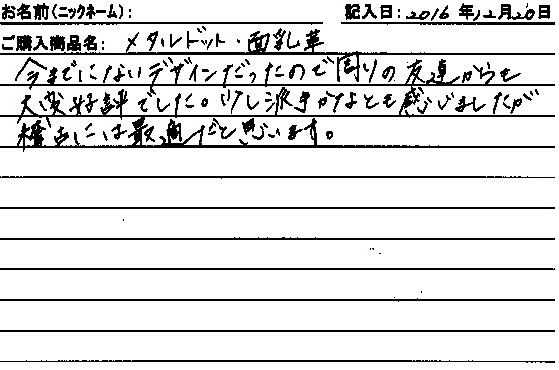 お名前(ニックネーム): 記入日:2016年12月20日
ご購入商品名: メタルドット・面乳革
今までにないデザインだったので周りの友達からも
大変好評でした。少し派手かなとも感じましたが
稽古には最適だと思います。